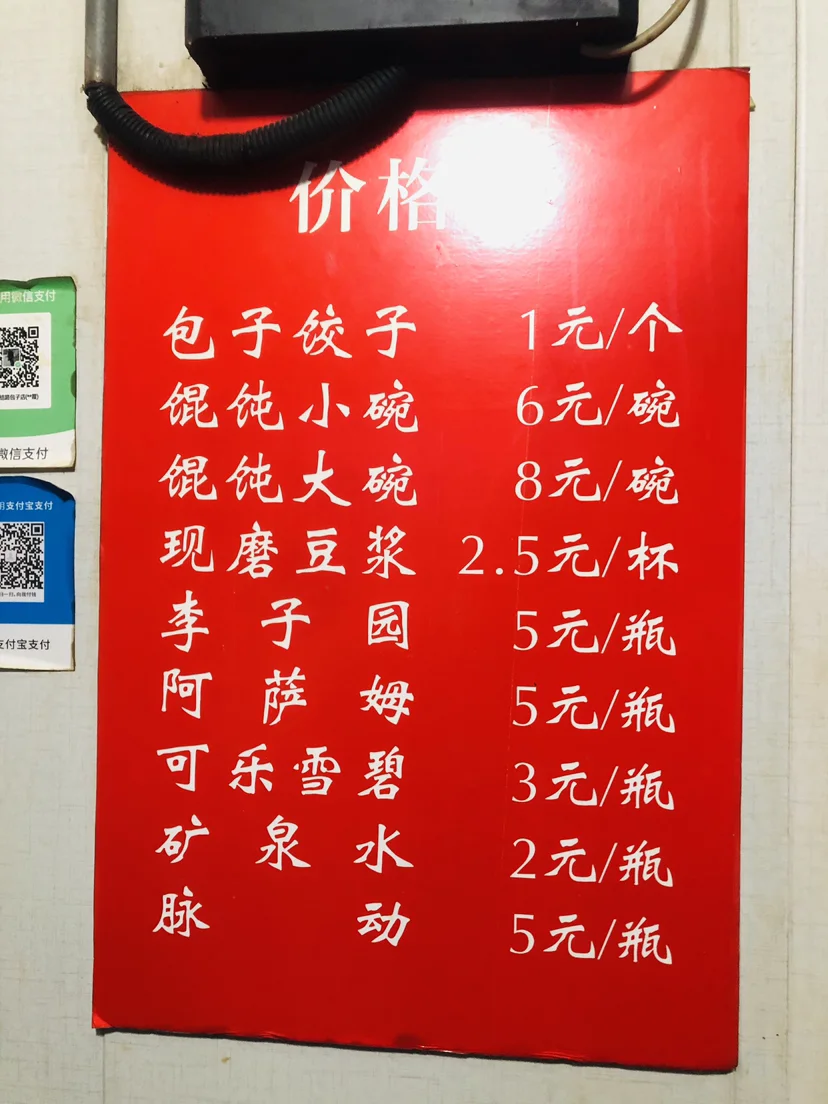 价格
包子饺子 1元/个
馄饨小碗 6元/碗
馄饨大碗 8元/碗
现磨豆浆 2.5元/杯
李子园 5元/瓶
阿萨姆 5元/瓶
可乐雪碧 3元/瓶
矿泉水 2元/瓶
脉动 5元/瓶
用微信支付
微信支付
用支付宝支付
支付宝支付